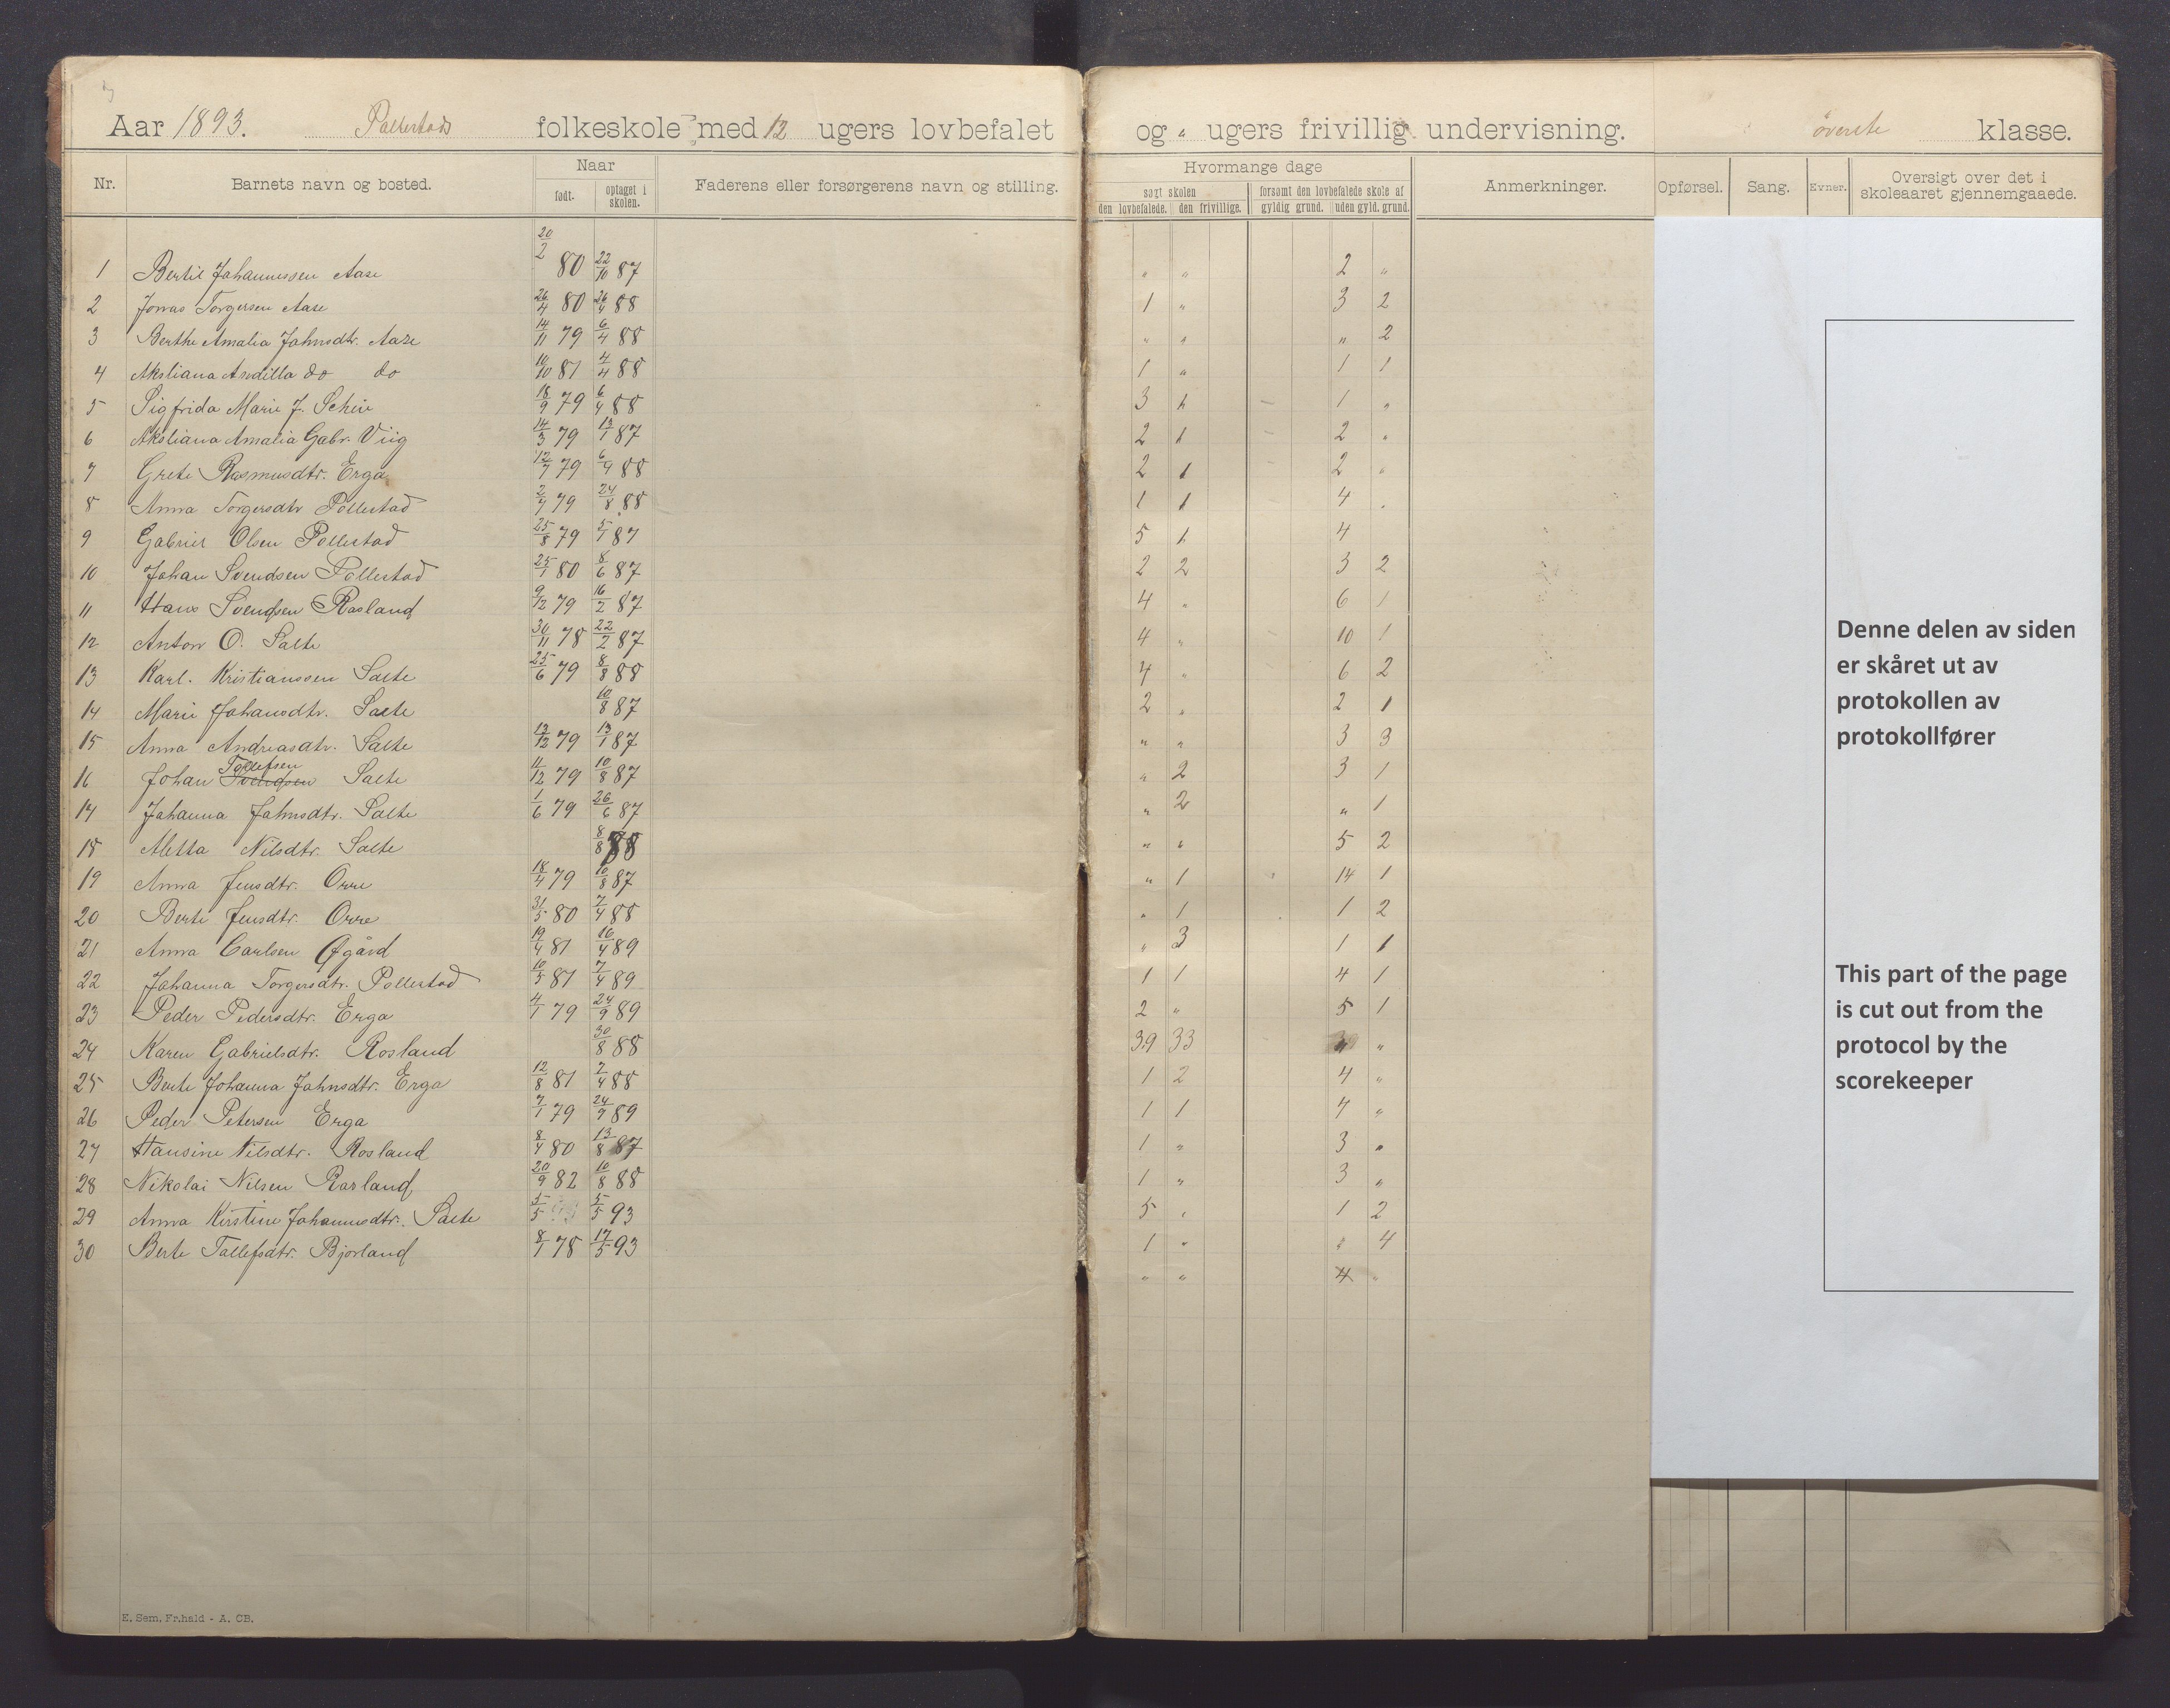 Aar 1893. Pollestads folkeskole med 12 ugers lovbefalet og " ugers frivillig undervisning. øverste klasse.
Nr. Barnets navn og bosted. Naar født. optaget i skolen. Faderens eller forsørgerens navn og stilling. Hvormange dage søgt skolen den lovbefalede. den frivillige. forsømt den lovbefalede skole af gyldig grund. uden gyld. grund. Anmerkninger. Opførsel. Sang. Evner. Oversigt over det i skoleaaret gjennemgaaede.
1 Bertil Johannessen Aase 20/2 80 22/10 87 " " 2 "
2 Jonas Torgersen Aase 26/4 80 26/4 88 1 " 3 2
3 Berthe Amalia Jahnsdtr. Aase 14/11 79 6/4 88 " " " 2
4 Aksliana do do 10/10 81 4/4 88 1 " 1 1
5 Sigfrida Marie J. 18/9 79 6/4 88 3 1 1 "
6 Aksliana Amalia Gabr. Viig 14/3 79 13/1 87 2 1 2 "
7 Grete Rasmusdtr. Erga 12/7 79 6/9 88 2 1 2 "
8 Anna Torgersdtr Pollestad 2/7 79 24/8 88 1 1 4 .
9 Gabriel Olsen Pollestad 25/8 79 5/1 87 5 1 4
10 Johan Svendsen Pollestad 25/1 80 8/6 87 2 2 3 2
11 Hans Svendsen Rosland 9/12 79 16/2 87 4 " 6 1
12 Anton O. Salte 30/11 78 22/2 87 4 " 10 1
13 Karl. Kristianssen Salte 25/6 79 8/8 88 4 " 6 2
14 Marie Johansdtr. Salte 10/8 87 2 " 2 1
15 Anna Andreasdtr. Salte 12/12 79 13/1 87 " " 3 3
Tollefsen
16 Johan Svendsen Salte 11/12 79 10/8 87 " 2 3 1
17 Johanna Jahnsdtr. Salte 1/6 79 26/6 87 " 2 " 1
18 Metta Nilsdtr. Salte 8/8 88 " " 5 2
19 Anna Jensdtr. Orre 18/4 79 10/8 87 " 1 14 1
20 Berte Jensdtr. Orre 31/5 80 7/4 88 " 1 1 2
21 Anna Carlsen Øgård 19/4 81 16/4 89 " 3 1 1
22 Johanna Torgersdtr. Pollestad 10/5 81 7/4 89 1 1 4 1
23 Peder Pedersdtr. Erga 4/1 79 24/9 89 2 " 5 1
24 Karen Gabrielsdtr. Rosland 30/8 88 39 33 "
25 Berte Johanna Jahnsdtr. Erga 12/8 81 7/4 88 1 2 4 "
26 Peder Petersen Erga 7/1 79 24/9 89 1 1 7 "
27 Hansine Nilsdtr. Rosland 8/4 80 13/8 87 1 " 3 "
28 Nikolai Nilsen Rosland 20/9 82 10/8 88 1 " 3 "
29 Anna Kirstine Johannesdtr. Salte 5/5 5/5 93 5 " 1 2
30 Berte Tollefsdtr. Bjorland 8/1 78 17/5 93 1 " " 4
" " 4 "
Denne delen av siden
er skåret ut av
protokollen av
protokollfører
This part of the page
is cut out from the
protocol by the
scorekeeper
E. Sem. Fr.hald - A. CB.